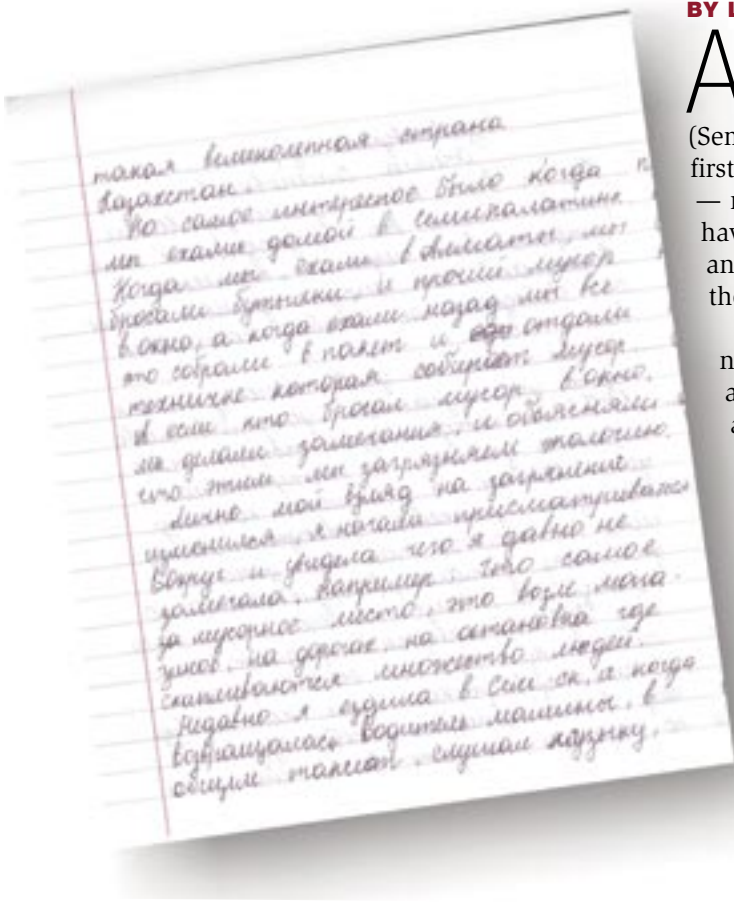 такая великолепная страна
Казахстан.
Но самое интересное было когда
мы ехали домой в Семипалатинск
Когда мы ехали в Алматы, мы
бросали бутылки, и прочий мусор
в окно, а когда ехали назад мы все
это собрали в пакет и отдали
техничке которая собирает мусор.
А если кто бросал мусор в окно,
мы делали замечания, и объясняли
что этим мы загрязняем экологию.
Лично мой взгляд на загрязнение
изменился, я начала присматриваться
вокруг и увидела чего я давно не
замечала, например: что самое
за мусорное место, это возле мага-
зинов, на дорогах, на остановка где
скапливаются множество людей.
Недавно я ездила в а когда
возвращалась водитель машины, в
общем таксист, слушал музыку,
BY
A
(Sen
first
—
hav
an
the
n
a
a